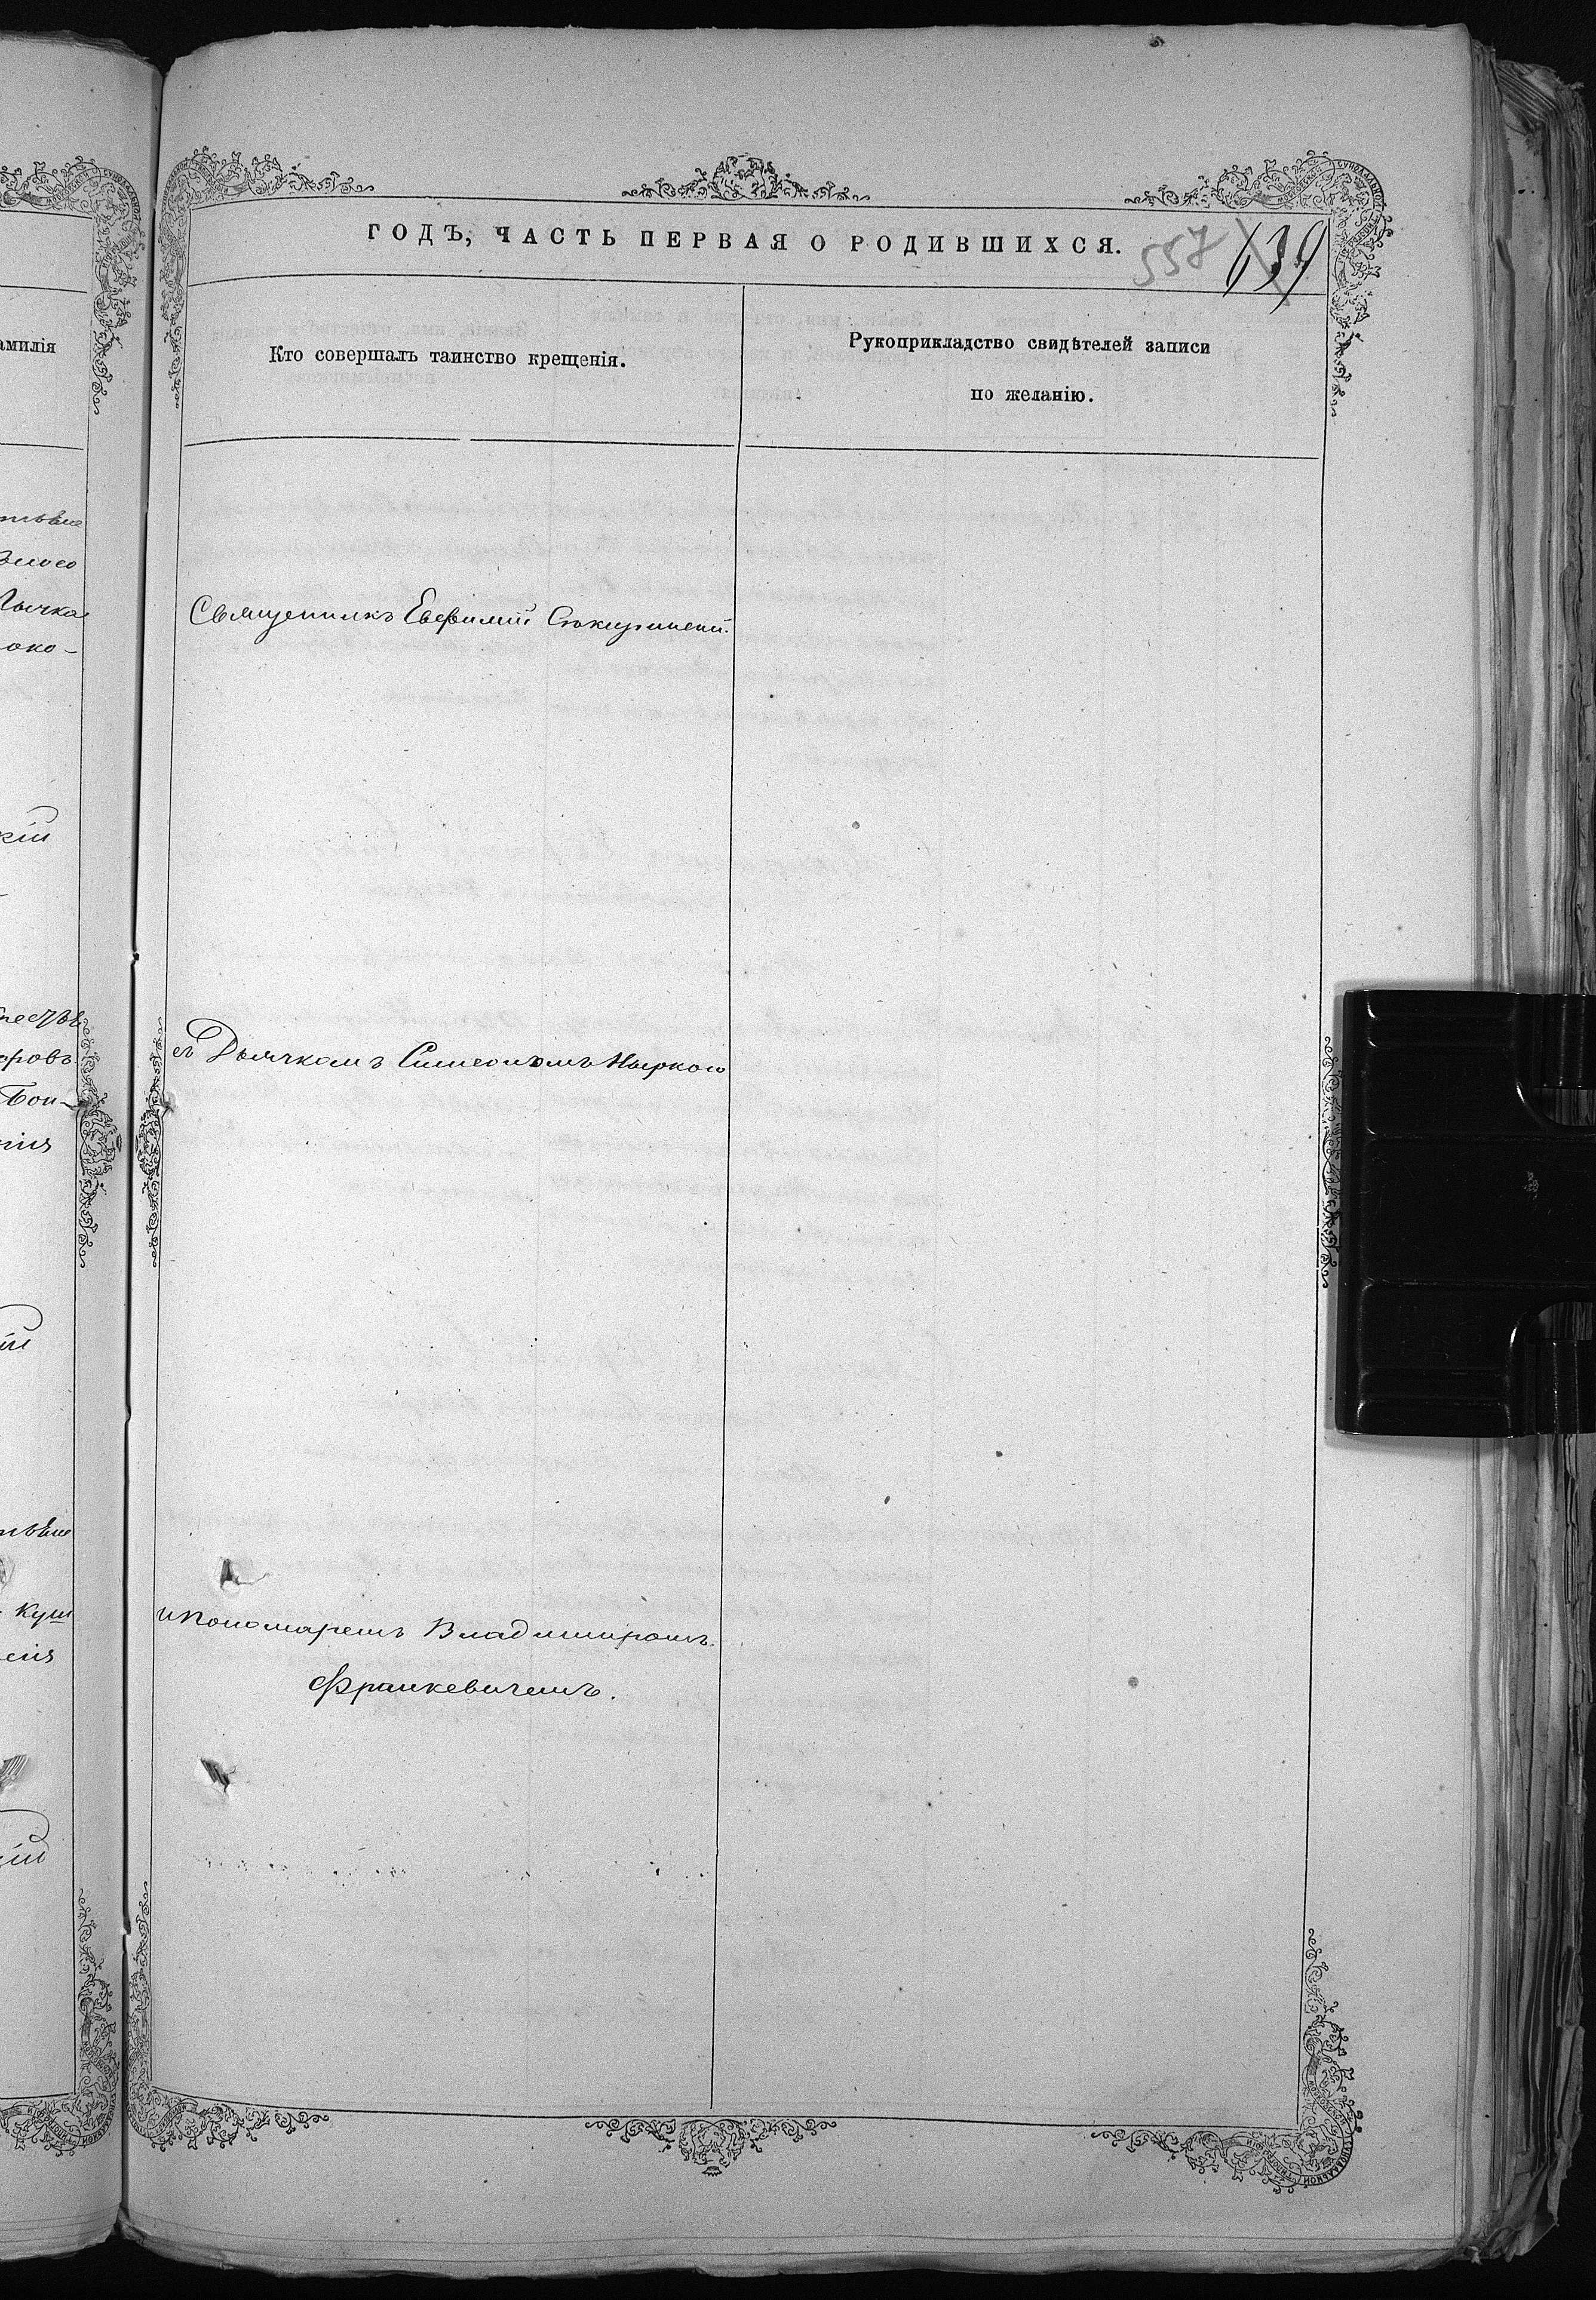 ГОДЪ, ЧАСТЬ ПЕРВАЯ О РОДИВШИХСЯ.
557 639
амилія
Кто совершалъ таинство крещенія.
Рукоприкладство свидѣтелей записи
по желанію.
Священникъ Евфимій
око-
кій
съ Дьячкомъ Симеономъ
аровъ
пономаремъ Владимиромъ
Куш
Франкевичемъ.